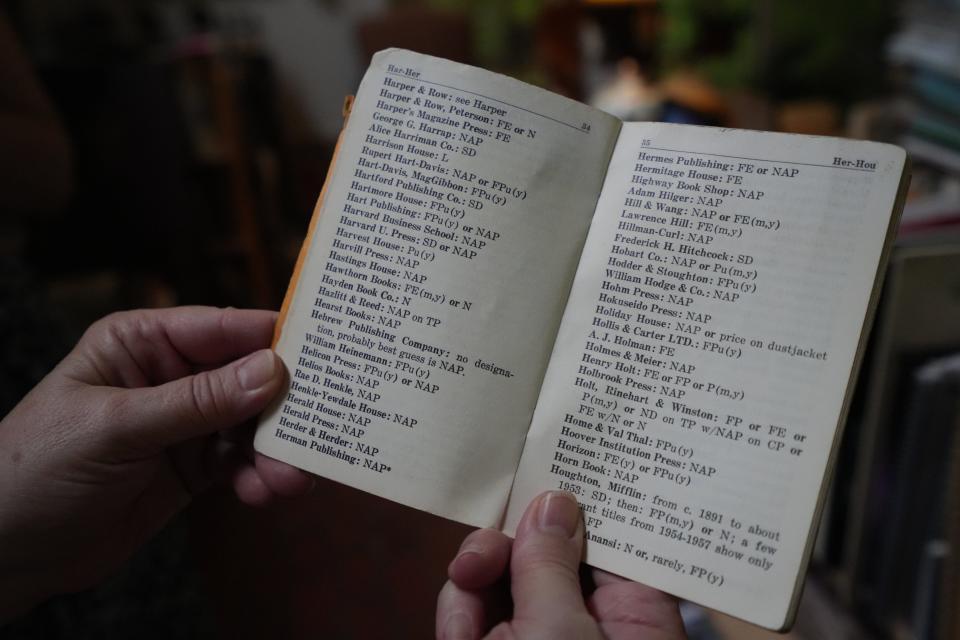 Har-Her 34
Harper & Row: see Harper
Harper & Row, Peterson: FE or N
Harper's Magazine Press: FE
George G. Harrap: NAP
Alice Harriman Co.: SD
Harrison House: L
Rupert Hart-Davis: NAP or FPu(y)
Hart-Davis, MagGibbon: FPu(y)
Hartford Publishing Co.: SD
Hartmore House: FPu(y)
Hart Publishing: FPu(y) or NAP
Harvard Business School: NAP
Harvard U. Press: SD or NAP
Harvest House: Pu(y)
Harvill Press: NAP
Hastings House: NAP
Hawthorn Books: FE(m,y) or N
Hayden Book Co.: N
Hazlitt & Reed: NAP on TP
Hearst Books: NAP
Hebrew Publishing Company: no designa-
tion, probably best guess is NAP.
William Heinemann: FPu(y)
Helicon Press: FPu(y) or NAP
Helios Books: NAP
Rae D. Henkle, NAP
Henkle-Yewdale House: NAP
Herald House: NAP
Herald Press: NAP
Herder & Herder: NAP
Herman Publishing: NAP*
35 Her-Hou
Hermes Publishing: FE or NAP
Hermitage House: FE
Highway Book Shop: NAP
Adam Hilger: NAP
Hill & Wang: NAP or FE(m,y)
Lawrence Hill: FE(m,y)
Hillman-Curl: NAP
Frederick H. Hitchcock: SD
Hobart Co.: NAP or Pu(m,y)
Hodder & Stoughton: FPu(y)
William Hodge & Co.: NAP
Hohm Press: NAP
Hokuseido Press: NAP
Holiday House: NAP or price on dustjacket
Hollis & Carter LTD.: FPu(y)
A. J. Holman: FE
Holmes & Meier: NAP
Henry Holt: FE or FP or P(m,y)
Holbrook Press: NAP
Holt, Rinehart & Winston: FP or FE or
P(m,y) or ND on TP w/NAP on CP or
FE w/N or N
Home & Val Thal: FPu(y)
Hoover Institution Press: NAP
Horizon: FE(y) or FPu(y)
Horn Book: NAP
Houghton, Mifflin: from c. 1891 to about
1953: SD; then: FP(m,y) or N; a few
titles from 1954-1957 show only
FP
Anansi: N or, rarely, FP(y)